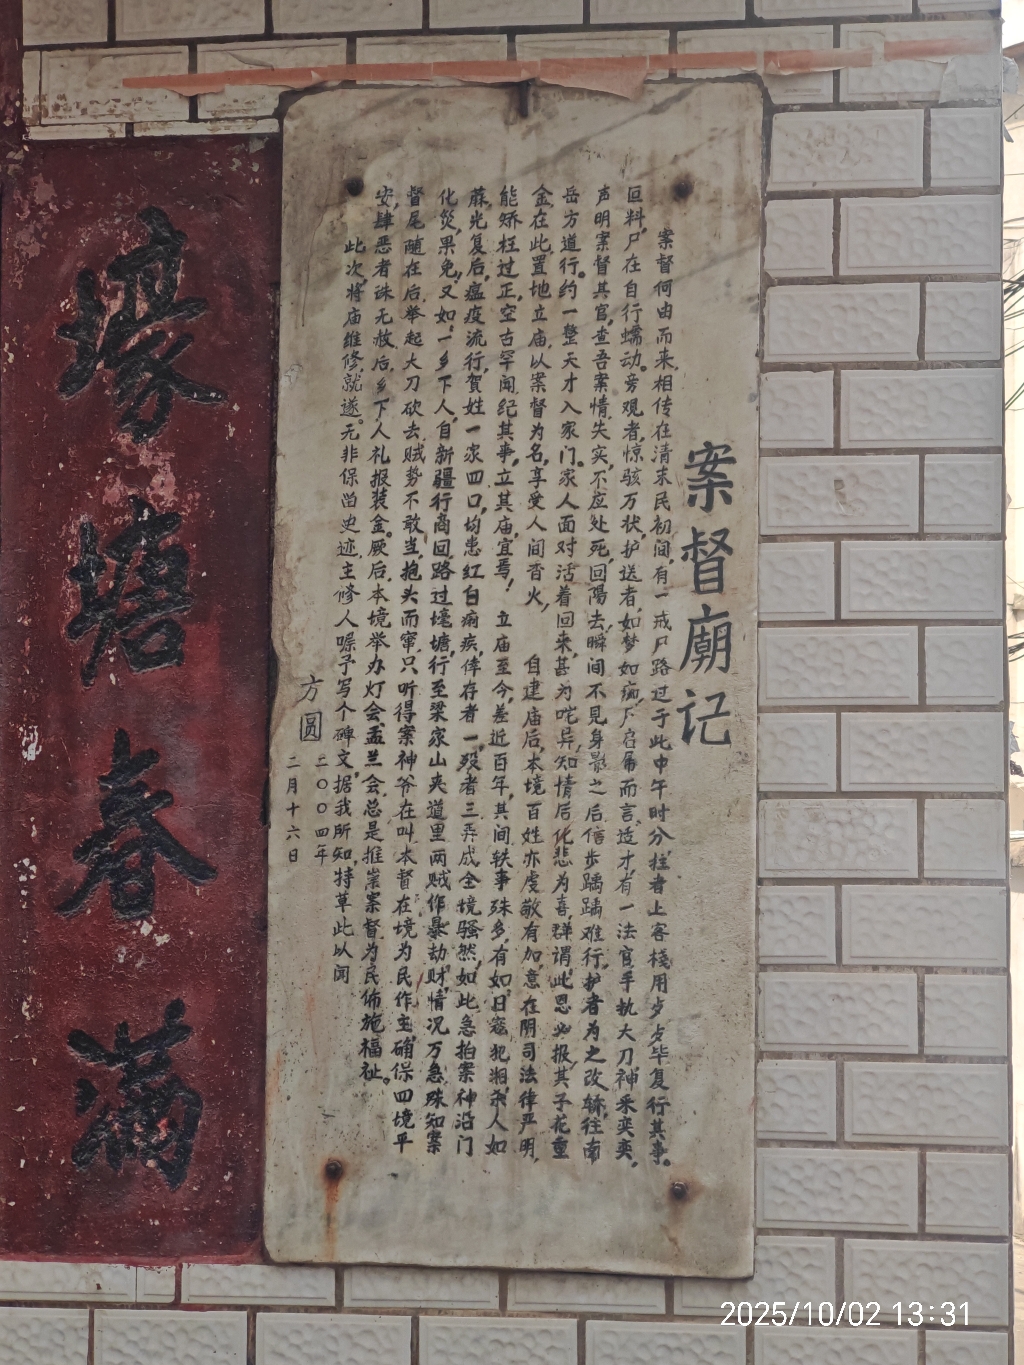 案督廟记
案督何由而来,相传在清末民初间,有一戒尸路过于此中午时分,挂者上客栈用歺,歺毕复行其事。
叵料尸在自行蠕动。旁观者,惊骇万状,护送者,如梦如痴,尸启唇而言,适才有一法官手执大刀神采奕奕,
声明案督其官,查吾案情失实,不应处死,回陽去,瞬间不见身影之后,信步蹒跚难行,护者为之改轿,往南
岳方道行。约一整天才入家门。家人面对活着回来,甚为咤异,知情后,化悲为喜,群谓此恩必报,其子花重
金在此置地立庙,以案督为名,享受人间香火, 自建庙后,本境百姓亦虔敬有加,意在阴司法律严明,
能矫枉过正,空古罕闻,纪其事,立其庙,宜焉, 立庙至今,差近百年,其间轶事殊多,有如日寇犯湘,杀人如
蔴,光复后,瘟疫流行,贺姓一家四口,均患红白痢疾,倖存者一,殁者三,弄成全境骚然,如此急抬案神沿门
化災,果免,又如:一乡下人,自新疆行商回,路过壕塘,行至梁家山夹道里,两贼作暴劫财,情况万急,殊知案
督尾随在后,举起大刀砍去,贼势不敢当,抱头而窜,只听得案神爷在叫,本督在境为民作主,确保四境平
安,肆恶者诛无赦,后,乡下人礼报装金。厥后本境举办灯会,盂兰会,总是推崇案督为民佈施福祉。
此次,将庙维修就遂。无非保畄史迹,主修人嘱予写个碑文,据我所知,特草此以闻
方圆
二〇〇四年
二月十六日
壕塘春满
2025/10/02 13:31